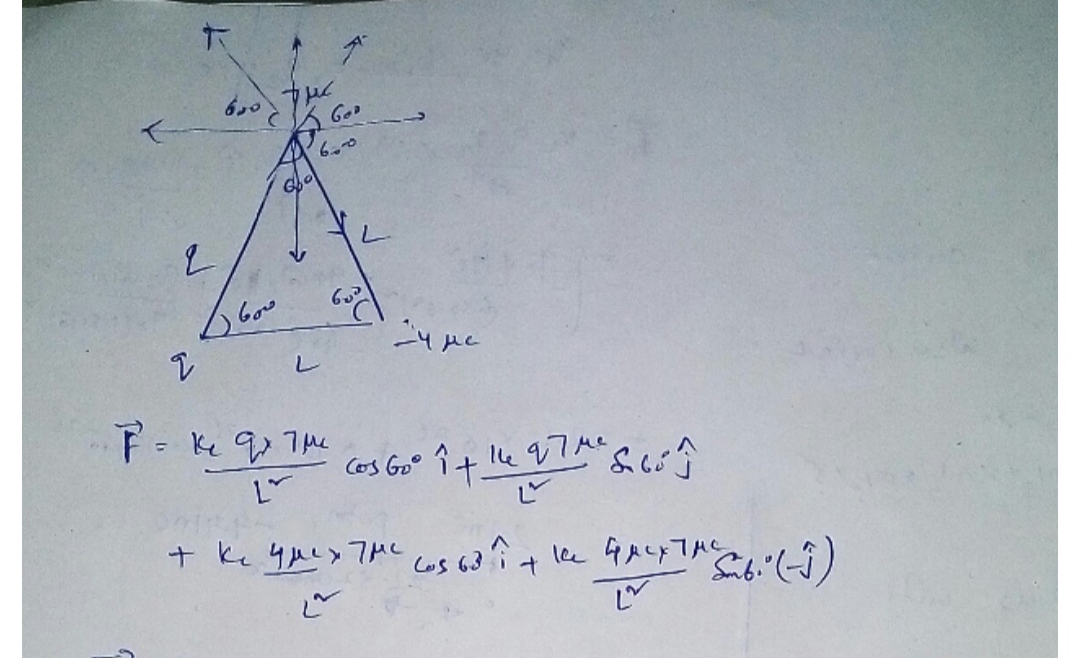 7 μc
60°
60°
60°
60°
L
L
60°
60°
-4 μc
q
L
F⃗ = Ke q x 7μc / L² cos60° î + Ke q 7μc / L² Sin60° ĵ
+ Ke 4μc x 7μc / L² cos60° î + Ke 4μc x 7μc / L² Sin60° (-ĵ)